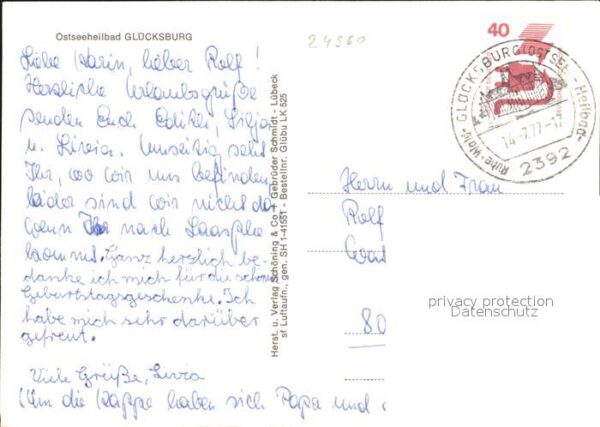 Ostseeheilbad GLÜCKSBURG
24960
Liebe Karin, lieber Rolf!
Herzliche Urlaubsgrüße
senden Euch Edith, Silja
u. Livia. Umseitig seht
Ihr, wo wir uns befinden.
Leider sind wir nicht da
wenn Ihr nach Laasphe
kommt. Ganz herzlich be-
danke ich mich für die schönen
Geburtstagsgeschenke. Ich
habe mich sehr darüber
gefreut.
Viele Grüße, Livia
(Um die Kappe haben sich Papa und
Herst. u. Verlag Schöning & Co + Gebrüder Schmidt - Lübeck
sf Luftaufn., gen. SH 1-41551 - Bestellnr. Glübu LK 525
40
GLÜCKSBURG (OSTSEE) -Heilbad-
Ruhe-Wald
14.-7.77.-17
2392
Herrn und Frau
Rolf
80
privacy protection
Datenschutz